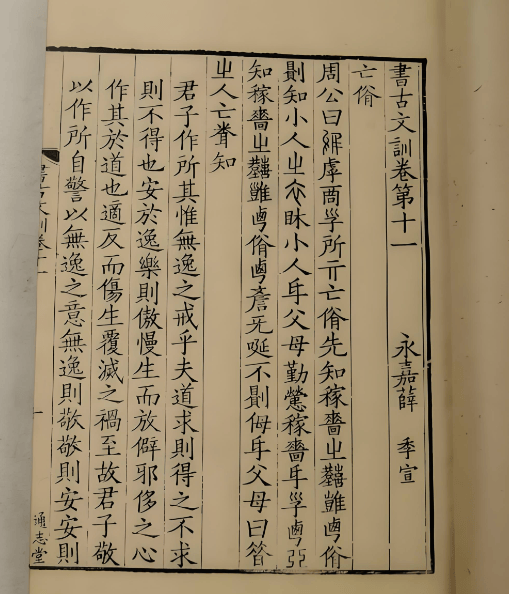 書古文訓卷第十一 永嘉薛 季宣
亡佾
周公曰虖孚所亓亡佾先知稼嗇㞢囏難佾
知小人㞢小人父母勤稼嗇
知稼嗇㞢囏難佾唌不侮父母曰
㞢人亡知
君子作所其惟無逸之戒乎夫道求則得之不求
則不得也安於逸樂則傲慢生而放僻邪侈之心
作其於道也適反而傷生覆滅之禍至故君子敬
以作所自警以無逸之意無逸則敬敬則安安則
書古文訓卷十一
一
通志堂